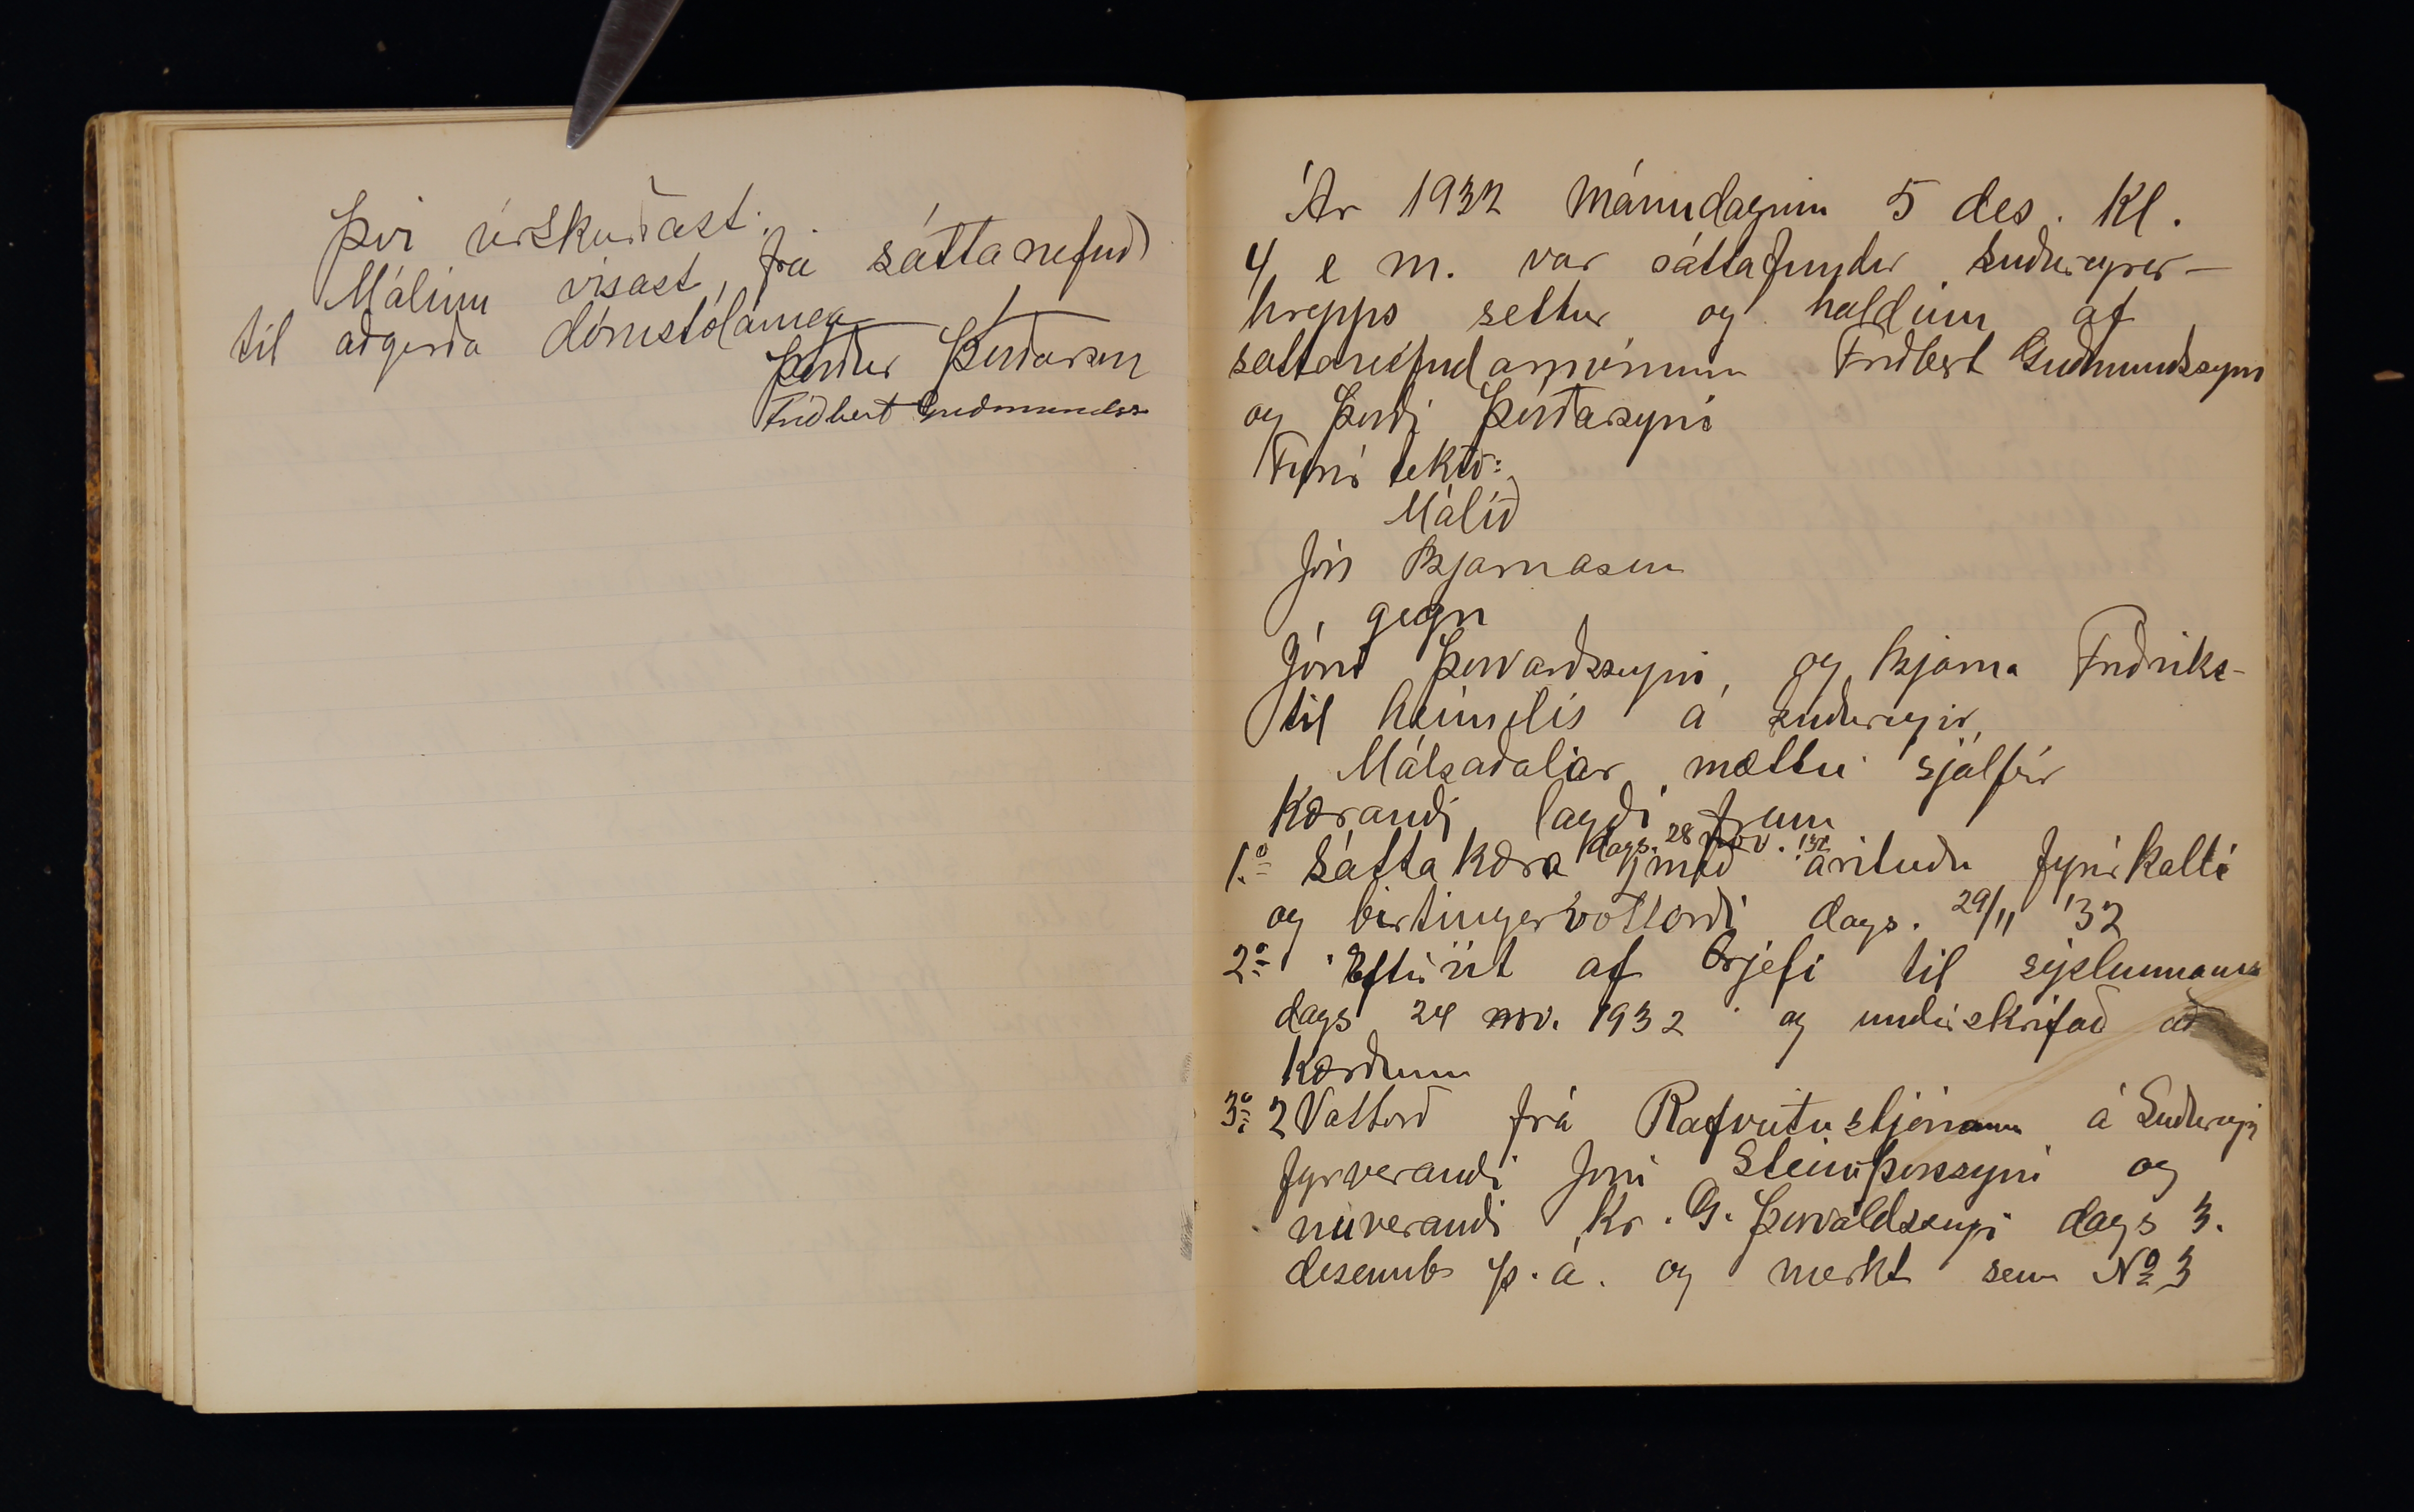 Því úrskurðast:
Málinu vísast frá sáttanefnd
til aðgerða dómstólanna
Þórður Þórðarson
Friðbert Guðmundss
Ár 1932 Mánudaginn 5 des. Kl.
4 e m. var sáttafundur Suðureyrar-
hrepps settur og haldinn af
sáttanefndarmönnum Friðbert Guðmundssyni
og Þórði Þórðarsyni
Fyrir tekið:
Málið
Jón Bjarnason
gegn
Jóni Þorvarðssyni, og Bjarna Friðriks-
til heimilis á Suðureyri,
Málsaðaliar mættu sjálfir
Kærandi lagði fram
1.º Sáttakæra dags. 28 nóv. '32 með árituðu fyrirkalli
og birtingarvottorði dags. 29/11 '32
2.º Eftirrit af brjefi til sýslumanns
dags 24 nóv. 1932 og undirskrifað að
kærðum
3.º 2 Vottorð frá Rafveitustjórum á Suðureyri
fyrverandi Jóni Steinþórssyni og
núverandi Kr. G. Þorvaldssyni dags 3.
desemb þ. á. og merkt sem Nº 3